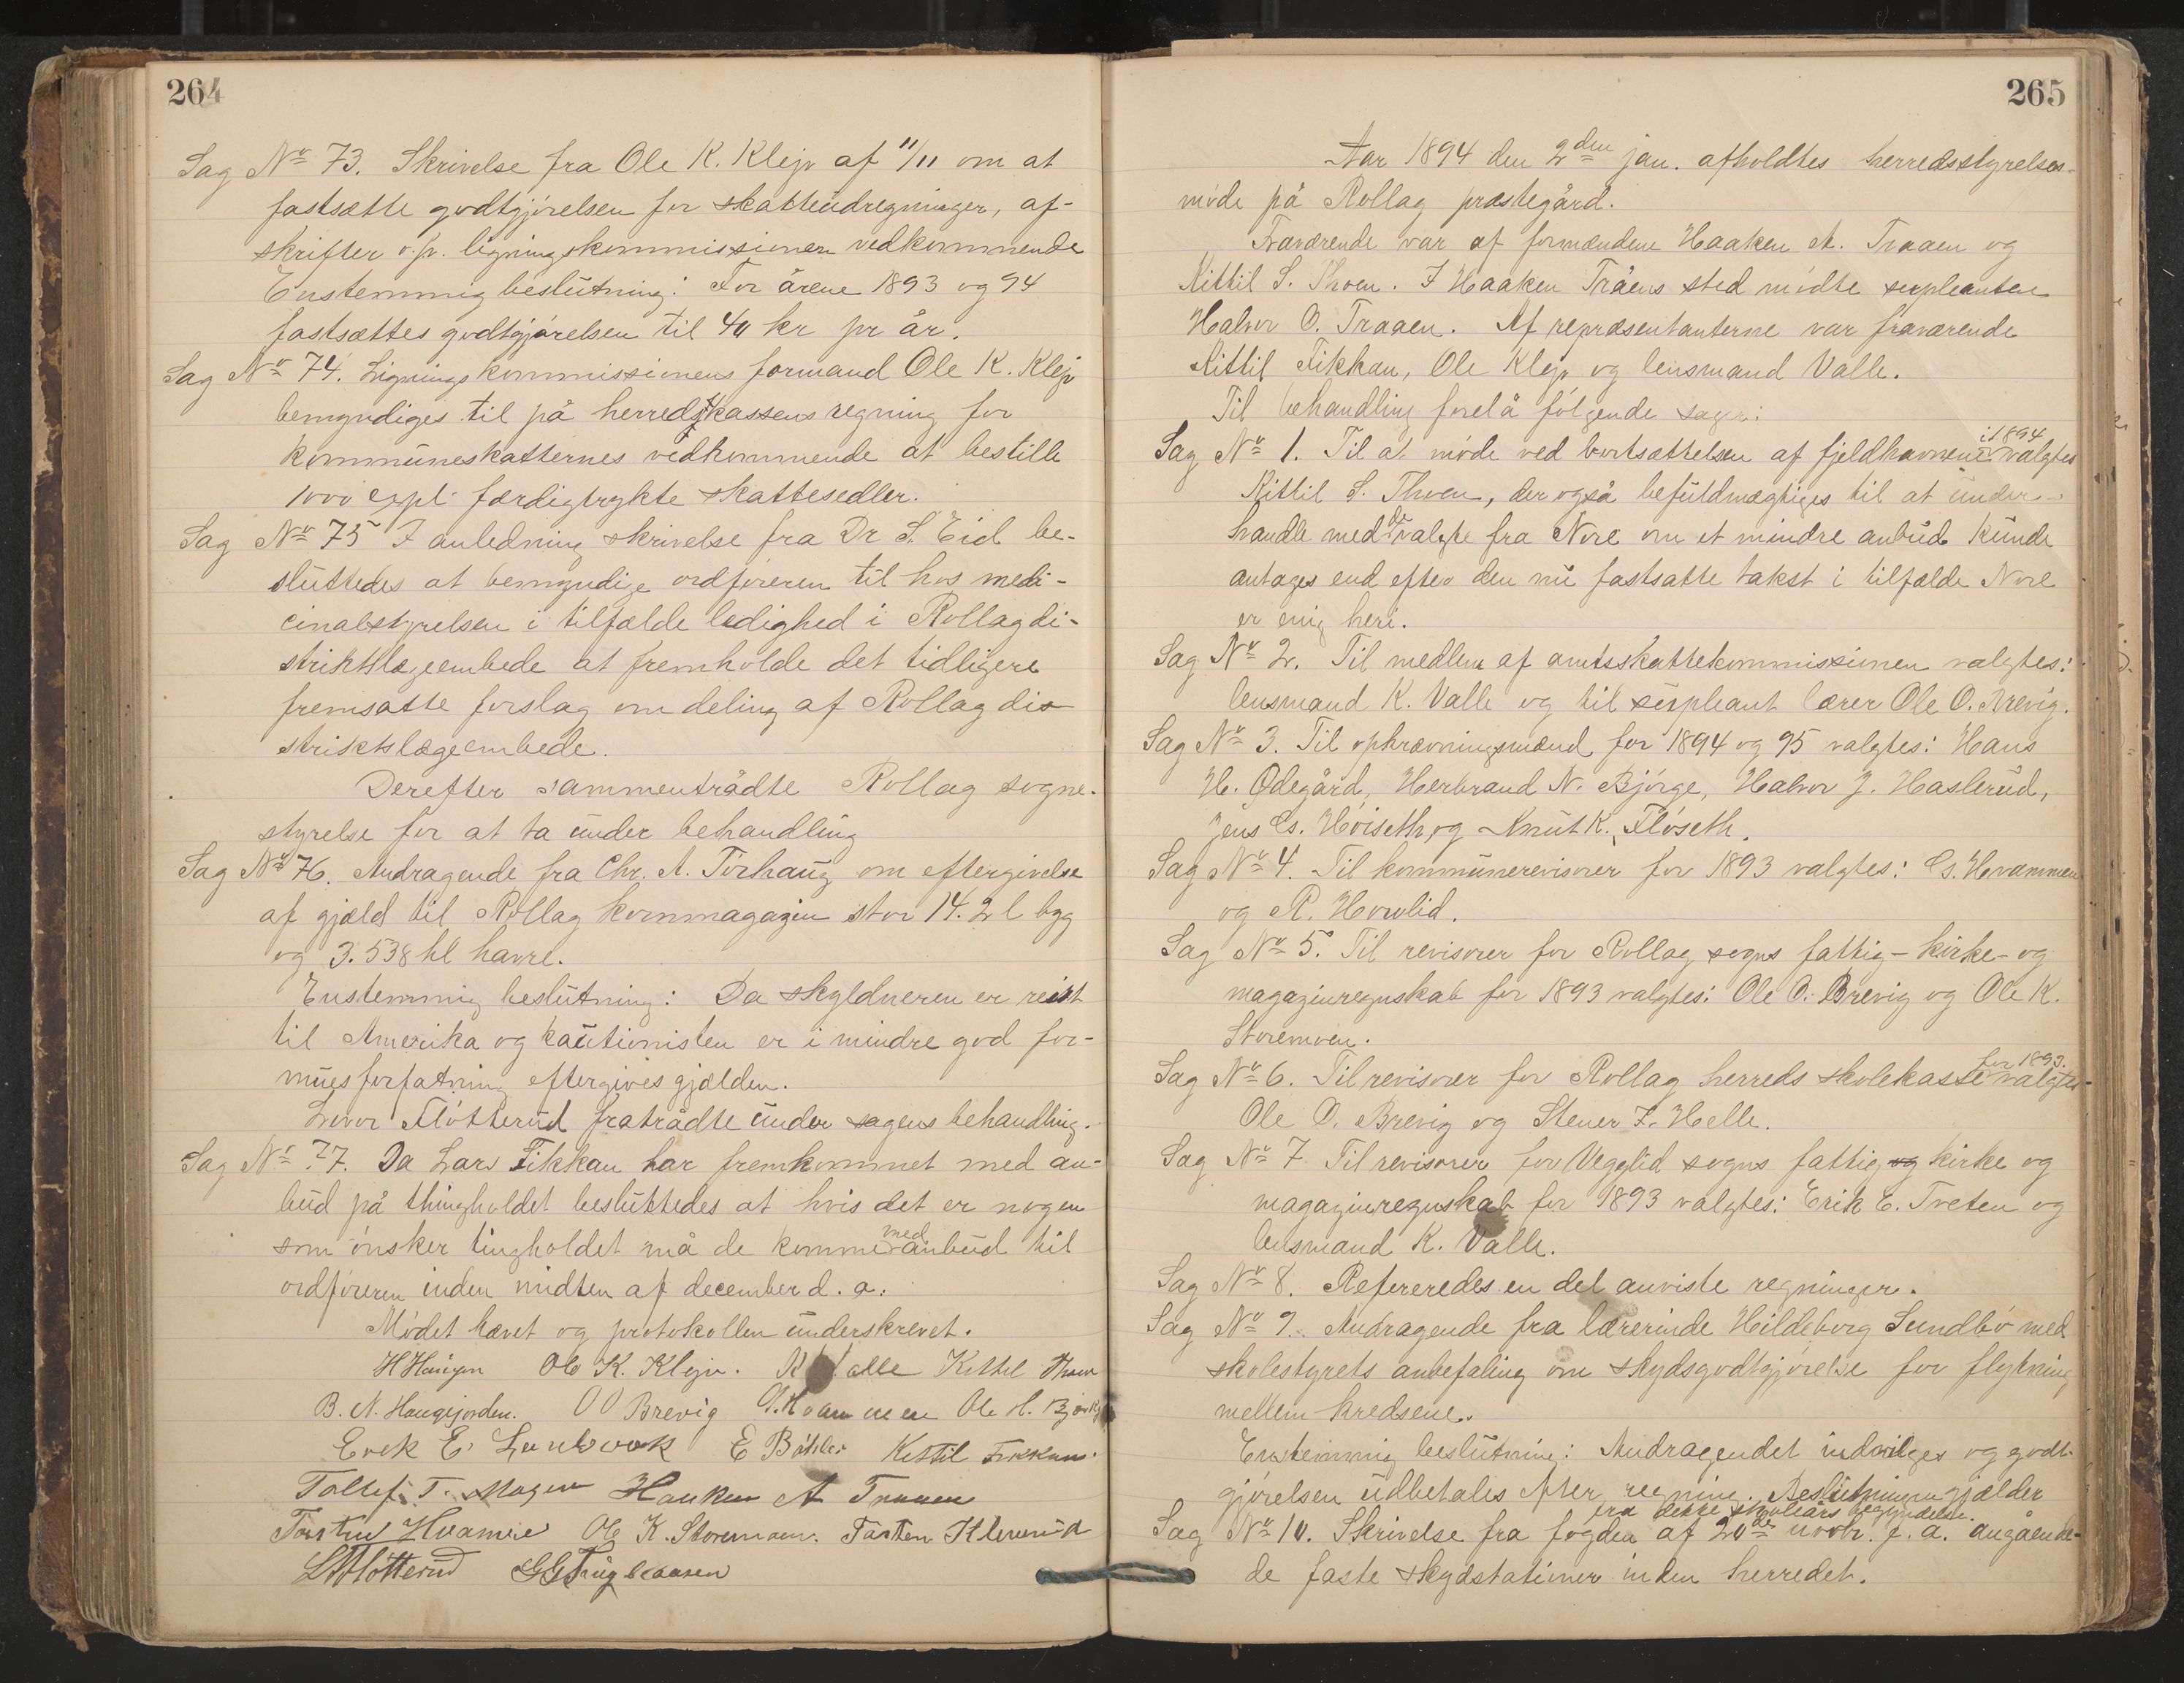 264
Sag Nr 73. Skrivelse fra Ole K. Klejv af 11/11 om at
fastsætte godtgjørelsen for skatteudregninger, af-
skrifter o.s.v. ligningskommissionen vedkommende
Enstemmig beslutning: For årene 1893 og 94
fastsættes godtgjørelsen til 40 kr pr år.
Sag Nr 74. Ligningskommissionens formand Ole K. Klejv
bemyndiges til på herredskassens regning for
kommuneskatternes vedkommende at bestille
1000 expl. færdigtrykte skattesedler.
Sag Nr 75 I anledning skrivelse fra Dr S. Eid be-
sluttedes at bemyndige ordføreren til hos medi-
cinalstyrelsen i tilfælde ledighed i Rollag di-
striktslægeembede at fremholde det tidligere
fremsatte forslag om deling af Rollag di-
striktslægeembede.
Derefter sammentrådte Rollag sogne-
styrelse for at ta under behandling
Sag Nr 76. Andragende fra Chr. A. Torhaug om eftergivelse
af gjæld til Rollag kornmagazin stor 14.2 l byg
og 3.538 hl havre.
Enstemmig beslutning: Da skyldneren er reist
til Amerika og kautionisten er i mindre god for-
muesforfatning eftergives gjælden.
Levor Fløtterud fratrådte under sagens behandling.
Sag Nr 77. Da Lars Fikkan har fremkommet med an-
bud på thingholdet besluttedes at hvis det er nogen
som ønsker tingholdet må de komme med anbud til
ordføreren inden midten af december d. a.
Mødet hævet og protokollen underskrevet.
H Haugen Ole K. Klejv. K Valle Kittil Thoen
B. N. Haugejorden. O O Brevig G. Kvammen Ole H. Bjørkg
Erek E. E Bøhler Kittil Fikkan.
Tollef T. Mogen Haaken A Traaen
Torsten Hvamme Ole K. Storemoen. Torsten Kleverud
L Fløtterud
265
Aar 1894 den 2den jan. afholdtes herredsstyrelses-
møde på Rollag præstegård.
Fraværende var af formændene Haaken A. Traaen og
Kittil S. Thoen. I Haaken Tråens sted mødte supleanten
Halvor O. Traaen. Af repræsentanterne var fraværende
Kittil Fikkan, Ole Klejv og lensmand Valle.
Til behandling forelå følgende sager:
Sag Nr 1. Til at møde ved bortsættelsen af fjeldhavnene i 1894 valgtes
Kittil S. Thoen, der også befuldmægtiges til at under-
handle med de valgte fra Nore om et mindre anbud kunde
antages end efter den nu fastsatte takst i tilfælde Nore
er enig heri.
Sag Nr 2. Til medlem af amtsskattekommissionen valgtes:
lensmand K. Valle og til supleant lærer Ole O. Brevig.
Sag Nr 3. Til opkrævningsmænd for 1894 og 95 valgtes: Hans
H. Ødegård, Herbrand N. Bjørge, Halvor J. Haslerud,
Jens Cs. Høiseth, og Knut K. Fløseth.
Sag Nr 4. Til kommunerevisorer for 1893 valgtes: Cs. Hvammen
og R. Hovolid.
Sag Nr 5. Til revisorer for Rollag sogns fattig- kirke- og
magazinregnskab for 1893 valgtes: Ole O. Brevig og Ole K.
Storemoen.
Sag Nr 6. Til revisorer for Rollag herreds skolekasse for 1893. valgtes
Ole O. Brevig og Stener F. Helle.
Sag Nr 7 Til revisorer for Vegglid sogns fattig og kirke og
magazinregnskab for 1893 valgtes: Erik E. Tveten og
lensmand K. Valle.
Sag Nr 8. Refereredes en del anviste regninger.
Sag Nr 9. Andragende fra lærerinde Hildeborg Sundbø med
skolestyrets anbefaling om skydsgodtgjørelse for flytning
mellem kredsene.
Enstemmig beslutning: Andragendet indvilges og godt-
gjørelsen udbetales efter regning. Beslutningen gjælder
fra dette skoleårs begyndelse.
Sag Nr 10. Skrivelse fra fogden af 20de novbr. f. a. angåen-
de faste skydsstationer inden herredet.